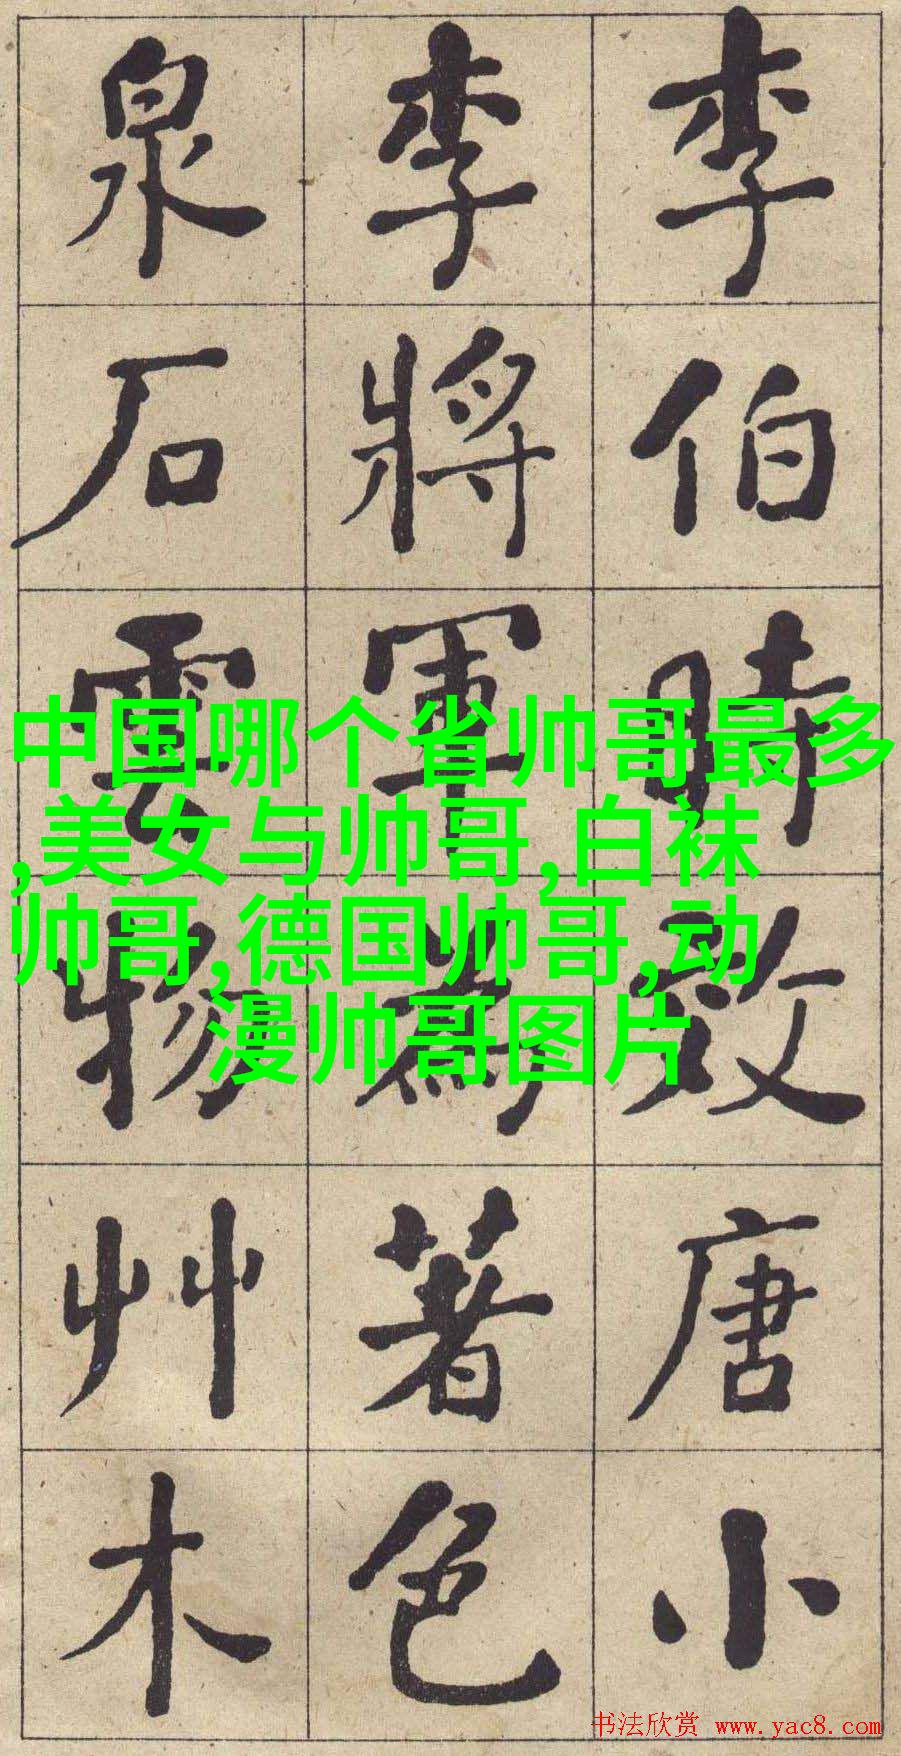 李伯時效唐小
李將軍爲著色
泉石雲物艸木
中国哪个省帅哥最多
,美女与帅哥,白袜
帅哥,德国帅哥,动
漫帅哥图片
书法欣赏 www.yac8.com